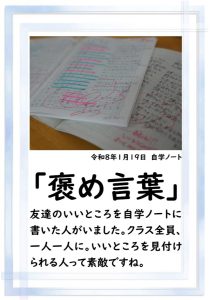 令和8年1月19日 自学ノート
「褒め言葉」
友達のいいところを自学ノートに
書いた人がいました。クラス全員、
一人一人に。いいところを見付け
られる人って素敵ですね。